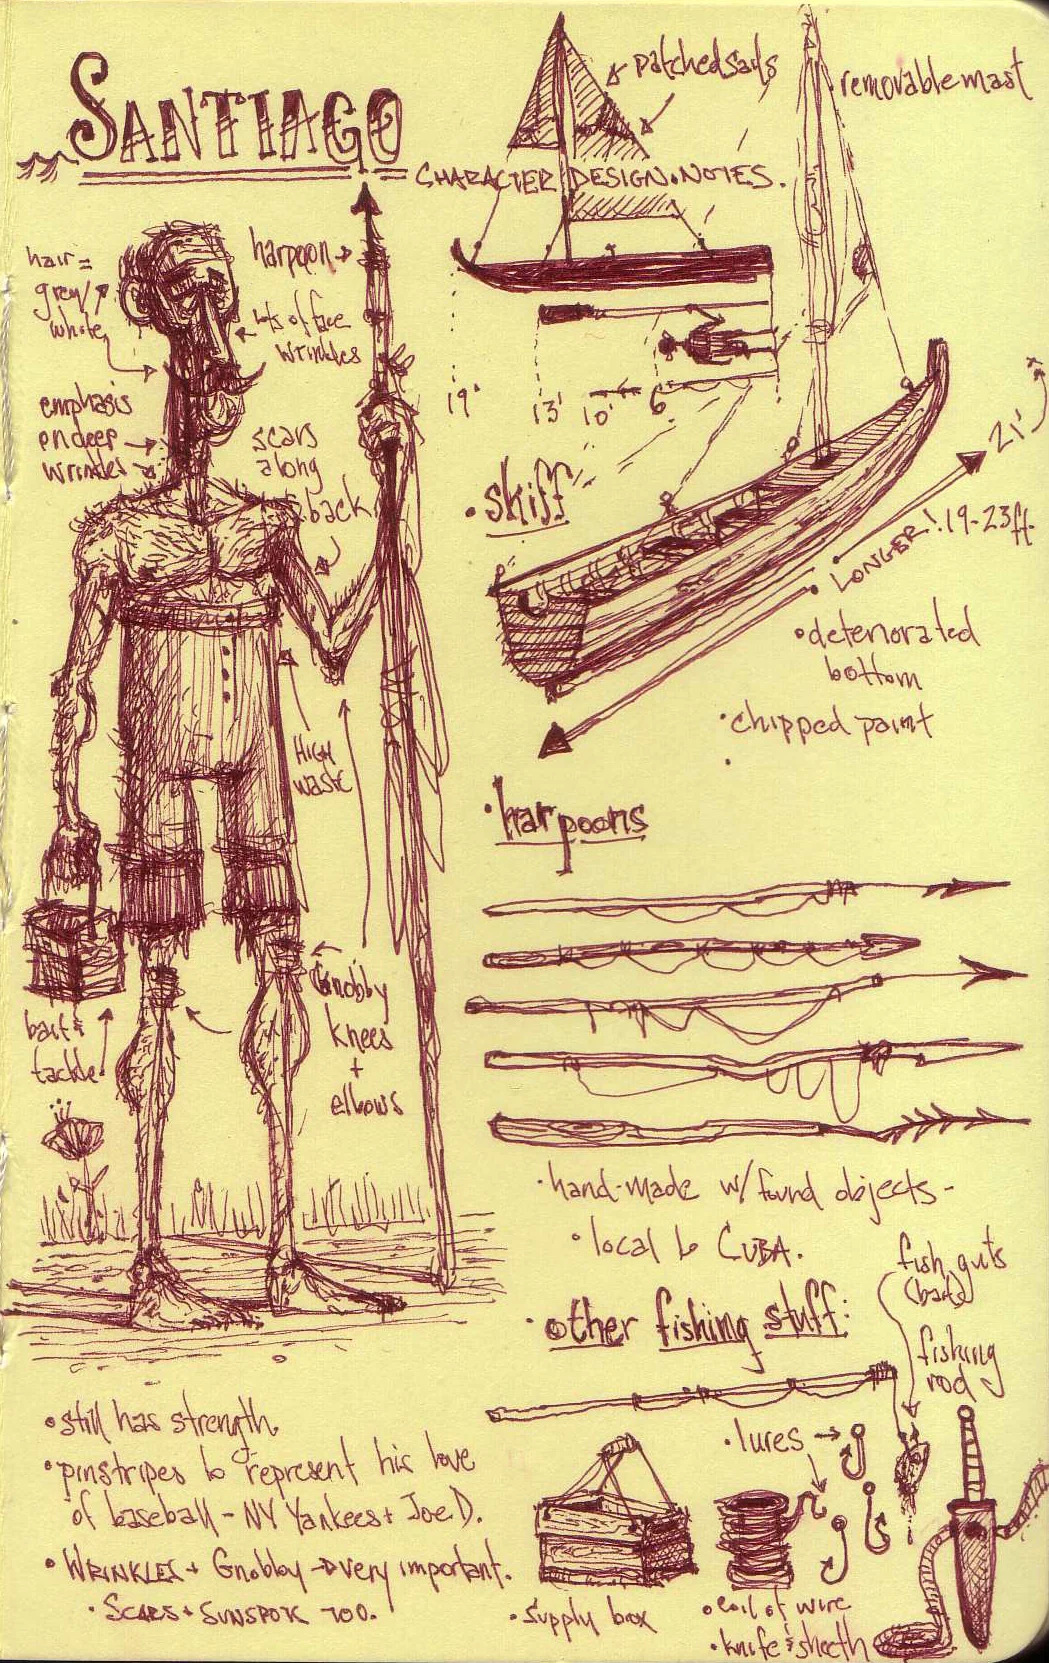 SANTIAGO
CHARACTER DESIGN NOTES.
patched sails
removable mast
hair =
grey/
white
harpoon
lots of face
wrinkles
emphasis
on deep
wrinkles
scars
along
back
HIGH
WASTE
Gnobby
knees
+
elbows
bait &
tackle
19'
13'
10'
6'
• skiff
21'
LONGER! 19-23ft.
• deteriorated
bottom
• chipped paint
• harpoons
• hand-made w/ found objects -
• local to CUBA.
• other fishing stuff:
fish guts
(bait)
fishing
rod
• lures
• supply box
• coil of wire
• knife & sheeth
• still has strength.
• pinstripes to represent his love
of baseball - NY Yankees + Joe D.
• WRINKLES + Gnobby → very important.
• SCARS + SUNSPOTS TOO.